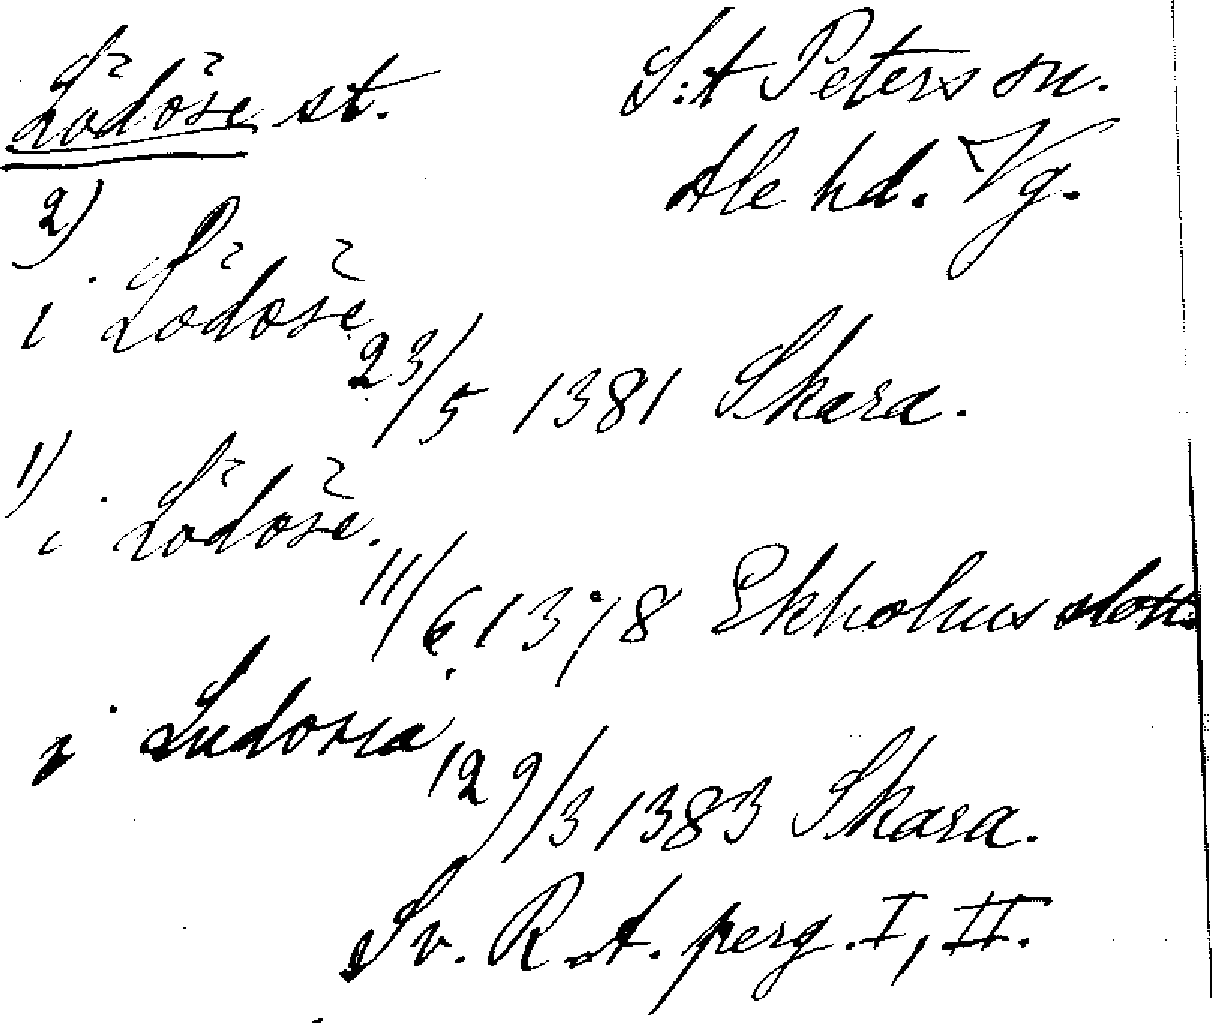 Lödöse st. S:t Peters sn.
Ale hd. Vg.
2)
i Lödöse
23/5 1381 Skara.
1)
i Lödöse.
11/6 1378 Ekholms slott
i Ludosia
29/3 1383 Skara.
Sv. R.A. perg. I, II.